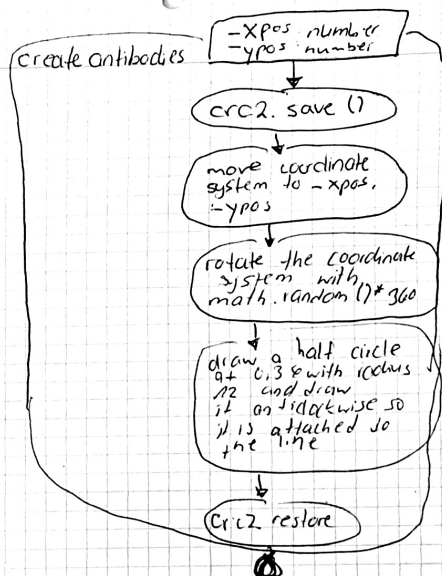 -Xpos: number
-ypos: number
create antibodies
crc2. save ()
move coordinate
system to -xpos,
-ypos
rotate the coordinate
system with
math.random ()* 360
draw a half circle
at 0,3 with radius
12 and draw
it antidockwise so
it is attached to
the line
crc2 restore